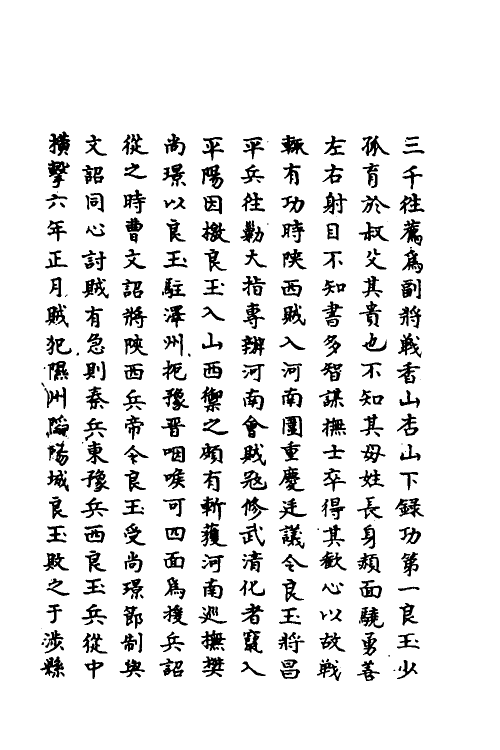 三千往薦爲副將戰杏山杏山下錄功第一良玉少
孤育於叔父其貴也不知其母姓長身赬面驍勇善
左右射目不知書多智謀撫士卒得其歡心以故戰
輒有功時陝西賊入河南圍懷慶廷議令良玉將昌
平兵往勦大指專辦河南會賊寇修武清化者竄入
平陽因檄良玉入山西禦之頗有斬獲河南巡撫樊
尚璟以良玉駐澤州扼豫晉咽喉可四面爲援兵詔
從之時曹文詔將陝西兵帝令良玉受尚璟節制與
文詔同心討賊有急則秦兵東豫兵西良玉兵從中
橫擊六年正月賊犯隰州陷陽城良玉敗之于涉縣